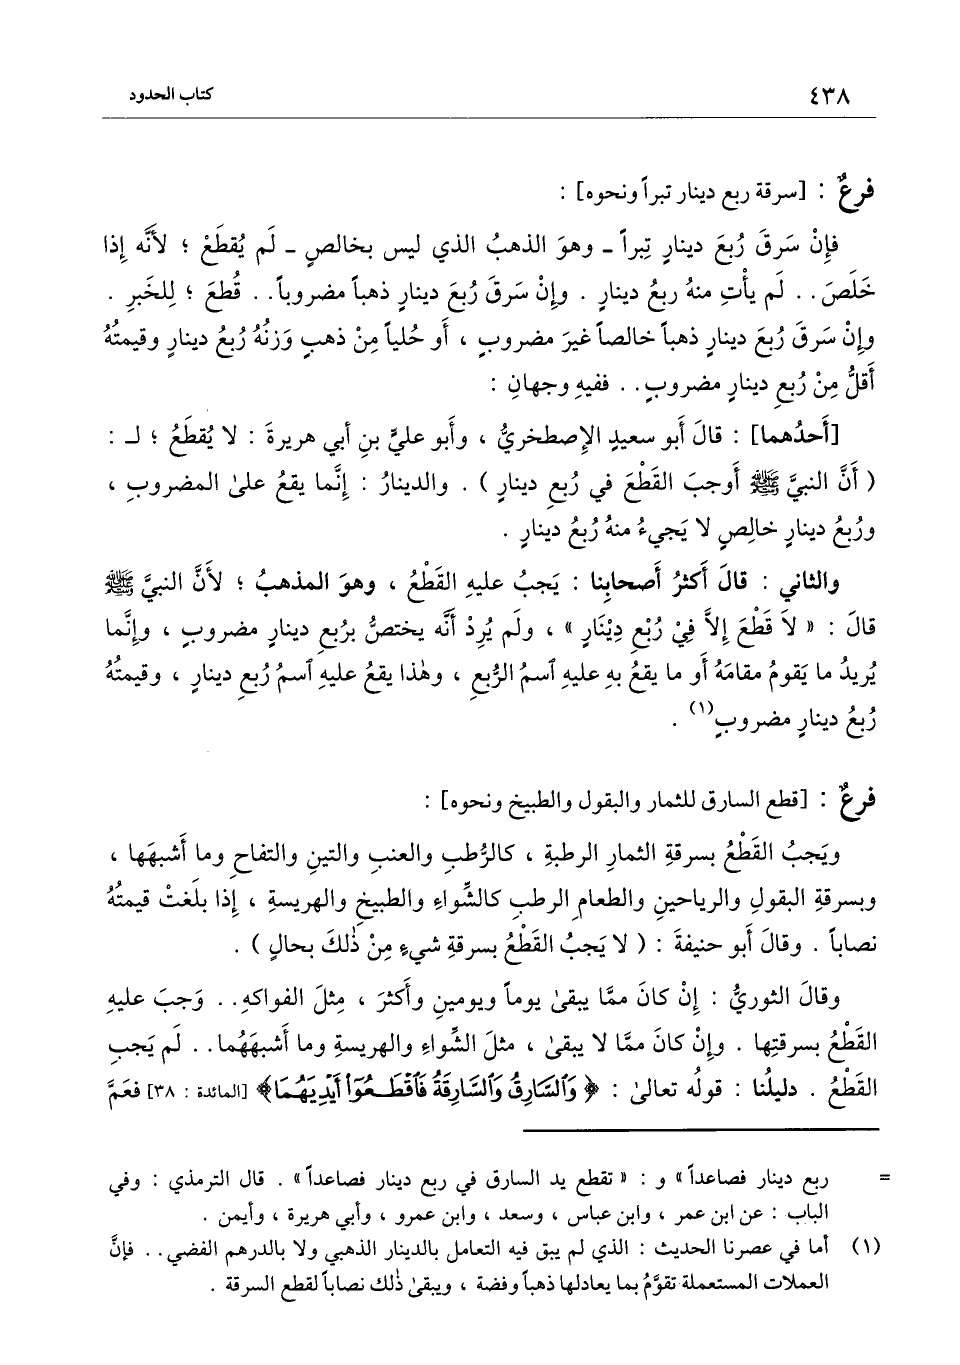 ٤٣٨
كتاب الحدود
فرعٌ : [سرقة ربع دينار تبراً ونحوه] :
فإنْ سَرقَ رُبعَ دينارٍ تِبراً ـ وهوَ الذهبُ الذي ليس بخالصٍ ـ لَم يُقطَعْ ؛ لأنَّه إذا
خَلَصَ . . لَم يأْتِ منهُ ربعُ دينارٍ . وإنْ سَرقَ رُبعَ دينارٍ ذهباً مضروباً . . قُطعَ ؛ لِلخَبرِ .
وإنْ سَرقَ رُبعَ دينارٍ ذهباً خالصاً غيرَ مضروبٍ ، أَو حُلياً مِنْ ذهبٍ وَزنُهُ رُبعُ دينارٍ وقيمتُهُ
أقلُّ مِنْ رُبعِ دينارٍ مضروبٍ . . ففيهِ وجهانِ :
[أَحدُهما] : قالَ أَبو سعيدٍ الإصطخريُّ ، وأَبو عليِّ بنِ أبي هريرةَ : لا يُقطَعُ ؛ لـ :
( أنَّ النبيَّ ﷺ أَوجبَ القَطْعَ في رُبعِ دينارٍ ) . والدينارُ : إنَّما يقعُ علىٰ المضروبِ ،
ورُبعُ دينارٍ خالِصٍ لا يَجيءُ منهُ رُبعُ دينارٍ .
والثاني : قالَ أَكثرُ أَصحابِنا : يَجبُ عليهِ القَطْعُ ، وهوَ المذهبُ ؛ لأنَّ النبيَّ ﷺ
قالَ : « لاَ قَطْعَ إلاَّ فِيْ رُبْعِ دِيْنَارٍ » ، ولَم يُرِدْ أنَّه يختصُّ برُبعِ دينارٍ مضروبٍ ، وإنَّما
يُريدُ ما يَقومُ مقامَهُ أَو ما يقعُ بهِ عليهِ ٱسمُ الرُّبعِ ، وهٰذا يقعُ عليهِ ٱسمُ رُبعِ دينارٍ ، وقيمتُهُ
رُبعُ دينارٍ مضروبٍ(١) .
فرعٌ : [قطع السارق للثمار والبقول والطبيخ ونحوه] :
ويَجبُ القَطْعُ بسرقةِ الثمارِ الرطبةِ ، كالرُّطبِ والعنبِ والتينِ والتفاحِ وما أَشبهَها ،
وبسرقةِ البقولِ والرياحينِ والطعامِ الرطبِ كالشِّواءِ والطبيخِ والهريسةِ ، إذا بلَغتْ قيمتُهُ
نصاباً . وقالَ أَبو حنيفةَ : ( لا يَجبُ القَطْعُ بسرقةِ شيءٍ مِنْ ذٰلكَ بحالٍ ) .
وقالَ الثوريُّ : إنْ كانَ ممَّا يبقىٰ يوماً ويومينِ وأَكثرَ ، مِثلَ الفواكهِ . . وَجبَ عليهِ
القَطْعُ بسرقتِها . وإنْ كانَ ممَّا لا يبقىٰ ، مثلَ الشِّواءِ والهريسةِ وما أَشبهَهُما . . لَم يَجبِ
القَطْعُ . دليلُنا : قولُه تعالىٰ : ﴿ وَٱلسَّارِقُ وَٱلسَّارِقَةُ فَٱقْطَعُوٓا۟ أَيْدِيَهُمَا﴾ [المائدة : ٣٨] فعَمَّ
= ربع دينار فصاعداً » و : « تقطع يد السارق في ربع دينار فصاعداً » . قال الترمذي : وفي
الباب : عن ابن عمر ، وابن عباس ، وسعد ، وابن عمرو ، وأبي هريرة ، وأيمن .
(١) أما في عصرنا الحديث : الذي لم يبق فيه التعامل بالدينار الذهبي ولا بالدرهم الفضي . . فإنَّ
العملات المستعملة تقوَّمُ بما يعادلها ذهباً وفضة ، ويبقىٰ ذٰلك نصاباً لقطع السرقة .